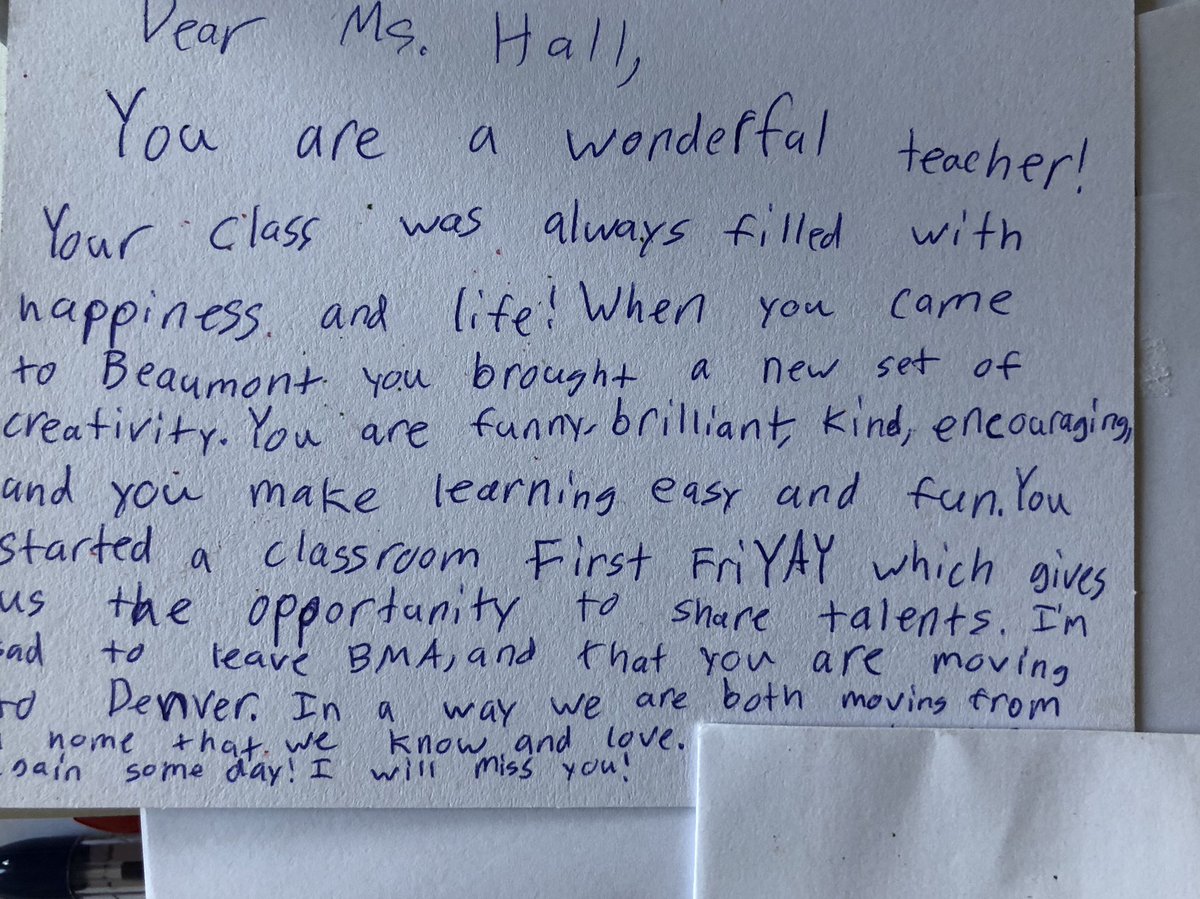 Dear Ms. Hall,
You are a wonderful teacher!
Your class was always filled with
happiness and life! When you came
to Beaumont you brought a new set of
creativity. You are funny, brilliant, kind, encouraging,
and you make learning easy and fun. You
started a classroom First FriYAY which gives
us the opportunity to share talents. I'm
sad to leave BMA, and that you are moving
to Denver. In a way we are both moving from
a home that we know and love.
again some day! I will miss you!